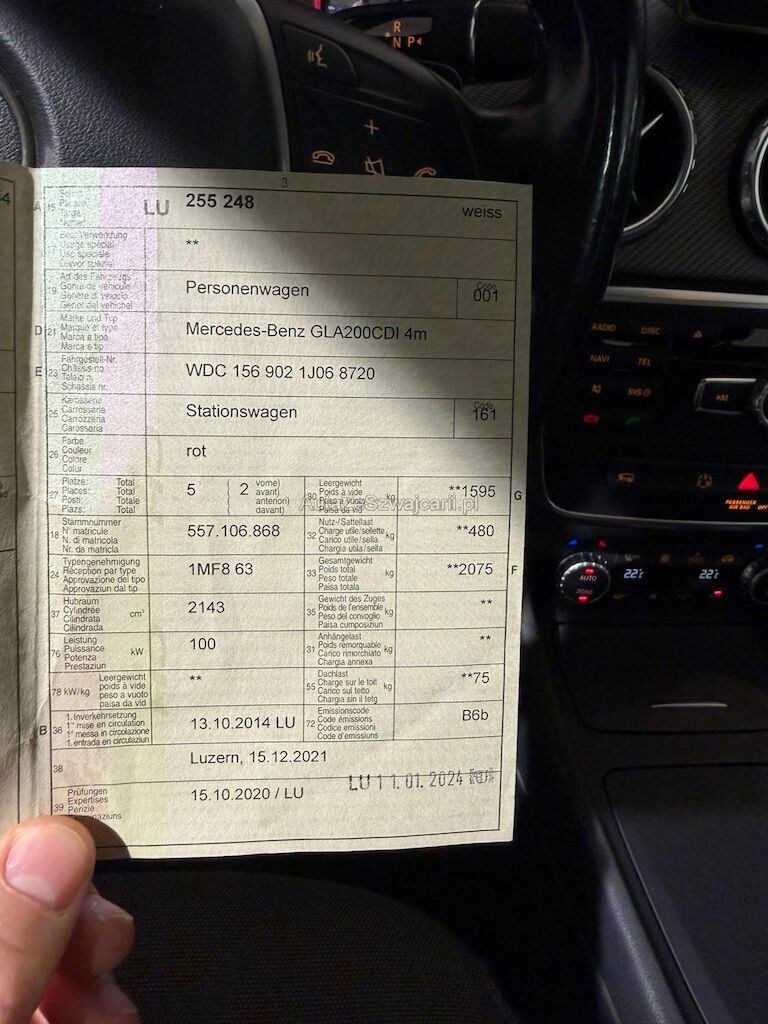 R
N P
3
A 15 Schild
Plaque
Targa
Numer
LU 255 248 weiss
17 Bes. Verwendung
Usage spécial
Uso speciale
Diever spezial
**
19 Art des Fahrzeugs
Genre de véhicule
Genere di veicolo
Gener dal vehichel
Personenwagen
Code
001
D 21 Marke und Typ
Marque et type
Marca e tipo
Marca e tip
Mercedes-Benz GLA200CDI 4m
E 23 Fahrgestell-Nr.
Châssis no
Telaio n.
Schassis nr.
WDC 156 902 1J06 8720
25 Karosserie
Carrosserie
Carrozzeria
Carossaria
Stationswagen
Code
161
26 Farbe
Couleur
Colore
Colur
rot
27 Plätze: Total
Places: Total
Posti: Totale
Plazs: Total
5 ( 2 vorne)
avant)
anteriori)
davant)
30 Leergewicht
Poids à vide
Peso a vuoto
Paisa da vid
kg **1595 G
18 Stammnummer
N° matricule
N. di matricola
Nr. da matricla
557.106.868
32 Nutz-/Sattellast
Charge utile/sellette
Carico utile/sella
Chargia utila/sella
kg **480
24 Typengenehmigung
Réception par type
Approvazione del tipo
Approvaziun dal tip
1MF8 63
33 Gesamtgewicht
Poids total
Peso totale
Paisa totala
kg **2075 F
37 Hubraum
Cylindrée
Cilindrata
Cilindrada
cm³ 2143
35 Gewicht des Zuges
Poids de l'ensemble
Peso del convoglio
Paisa cumposiziun
kg **
76 Leistung
Puissance
Potenza
Prestaziun
kW 100
31 Anhängelast
Poids remorquable
Carico rimorchiato
Chargia annexa
kg **
78 kW/kg Leergewicht
poids à vide
peso a vuoto
paisa da vid
**
55 Dachlast
Charge sur le toit
Carico sul tetto
Chargia sin il tetg
kg **75
B 36 1. Inverkehrsetzung
1re mise en circulation
1a messa in circolazione
1. entrada en circulaziun
13.10.2014 LU
72 Emissionscode
Code émissions
Codice emissioni
Code d'emissiuns
B6b
38 Luzern, 15.12.2021
39 Prüfungen
Expertises
Perizie
15.10.2020 / LU
LU 1 1. 01. 2024
RADIO DISC
NAVI TEL
SYS
PASSENGER
AIR BAG OFF
AUTO
ZONE
22°
22°